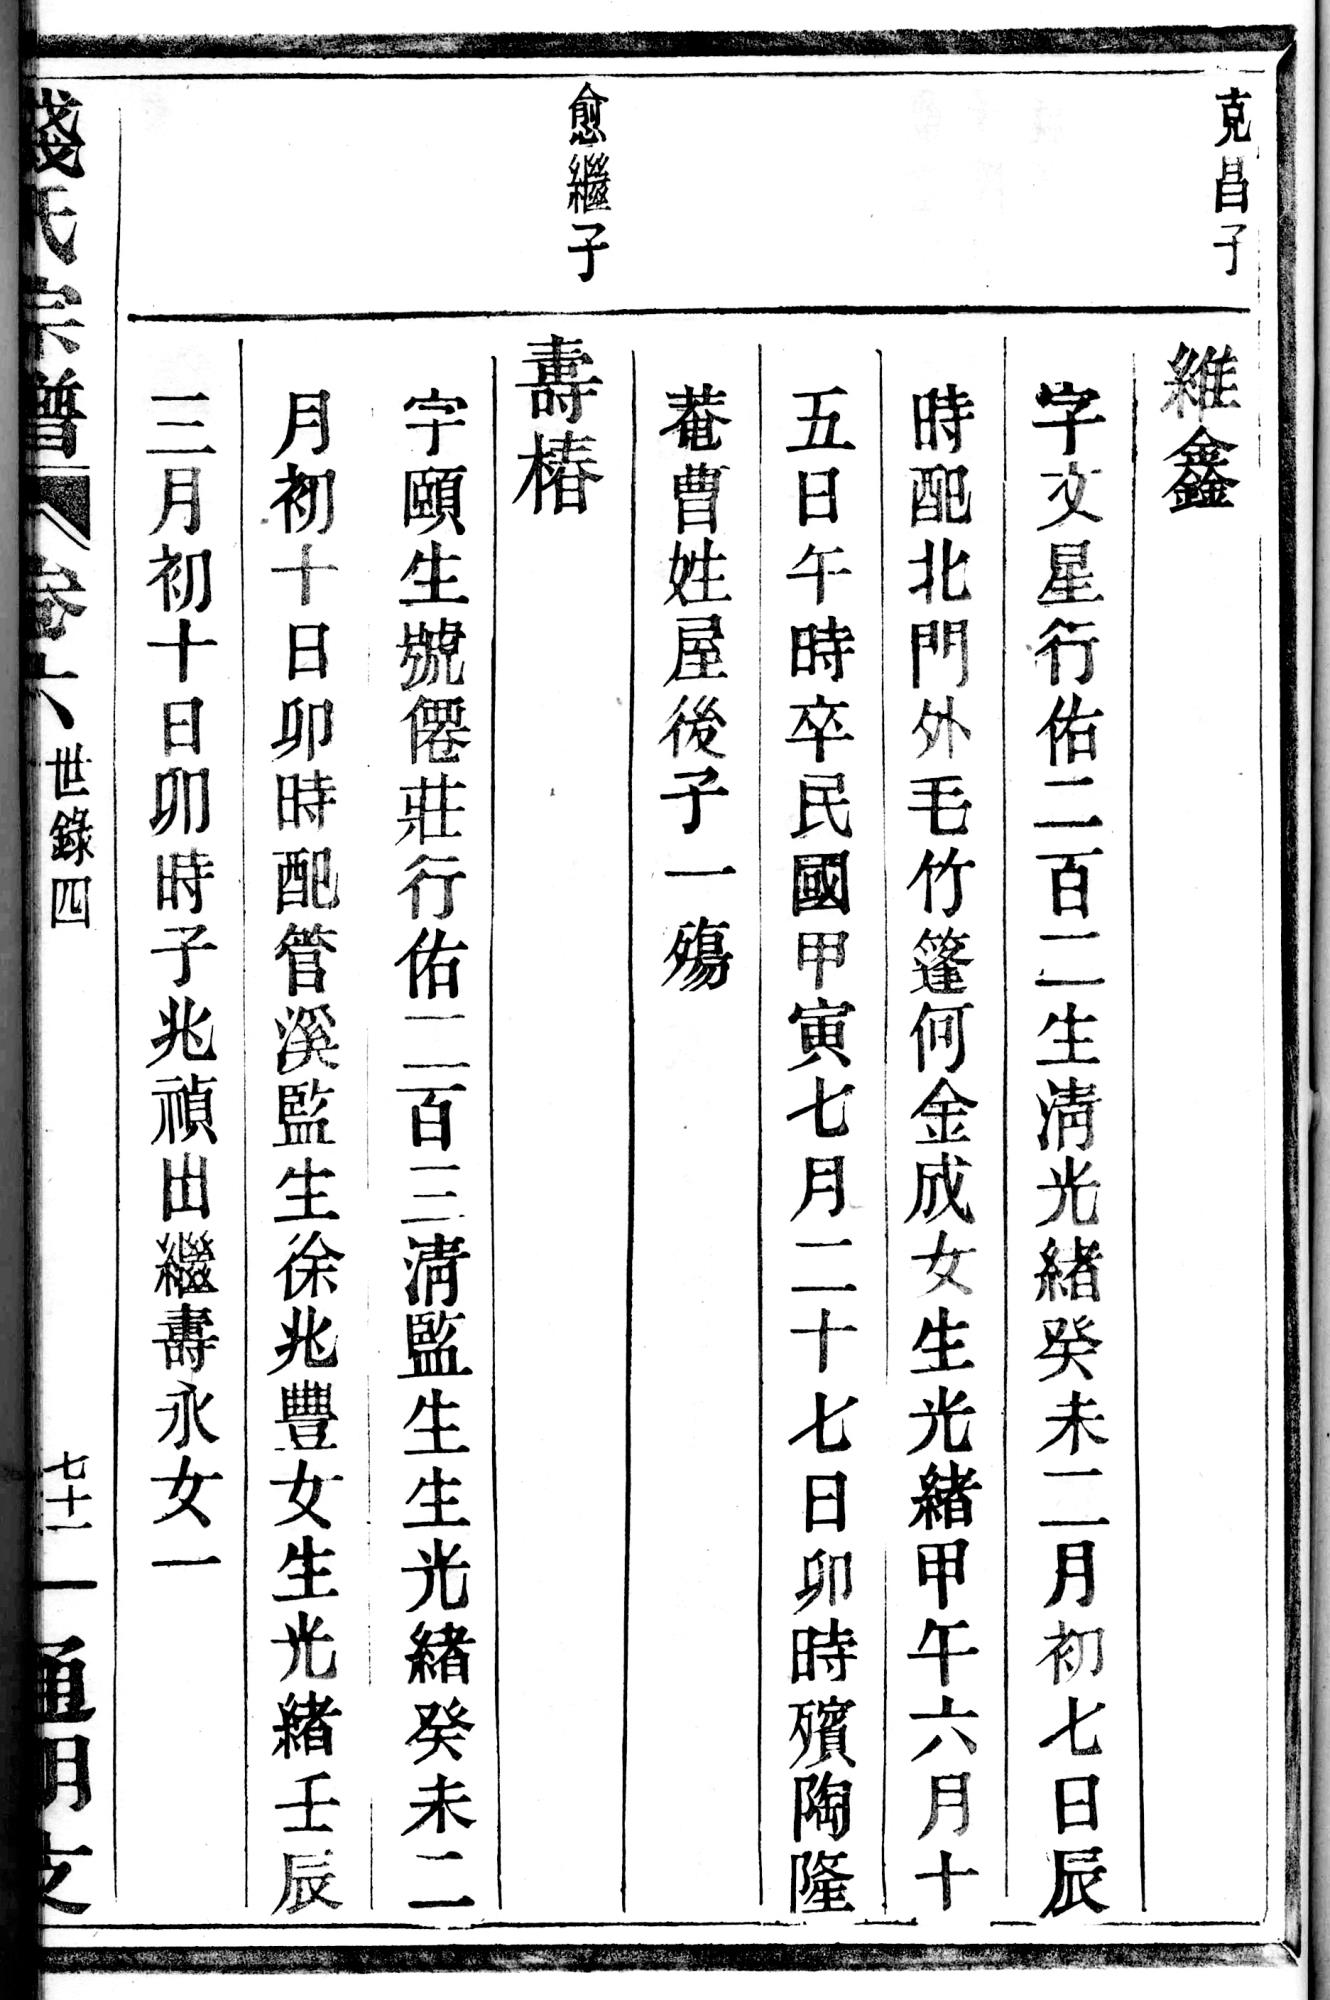 克昌子
維鑫
字文星行佑二百二生清光緒癸未二月初七日辰
時配北門外毛竹篷何金成女生光緒甲午六月十
五日午時卒民國甲寅七月二十七日卯時殯陶隆
菴曹姓屋後子一殤
愈繼子
壽椿
字頤生號僊莊行佑二百三清監生生光緒癸未二
月初十日卯時配管溪監生徐兆豐女生光緒壬辰
三月初十日卯時子兆禎出繼壽永女一
錢氏宗譜 卷六 世錄四 七十一 通明支